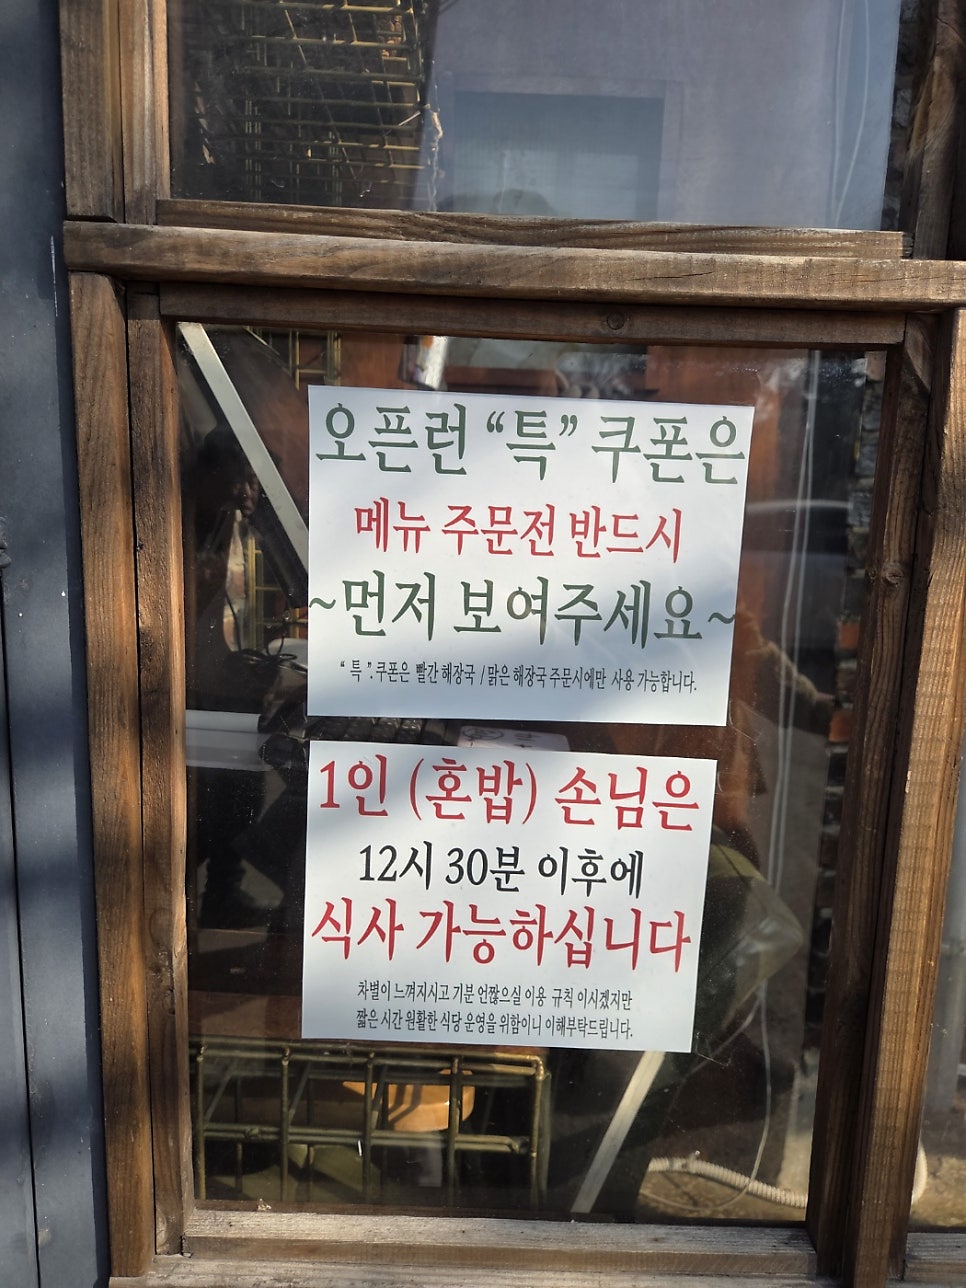 오픈런 “특” 쿠폰은
메뉴 주문전 반드시
~먼저 보여주세요~
“ 특 ”. 쿠폰은 빨간 해장국 / 맑은 해장국 주문시에만 사용 가능합니다.
1인 (혼밥) 손님은
12시 30분 이후에
식사 가능하십니다
차별이 느껴지시고 기분 언짢으실 이용 규칙 이시겠지만
짧은 시간 원활한 식당 운영을 위함이니 이해부탁드립니다.